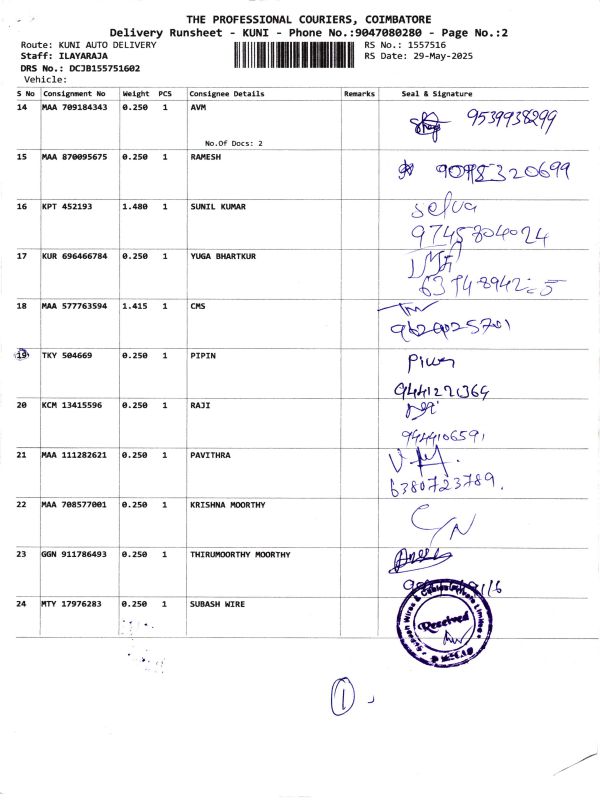 THE PROFESSIONAL COURIERS, COIMBATORE
Delivery Runsheet - KUNI - Phone No.:9047080280 - Page No.:2
Route: KUNI AUTO DELIVERY RS No.: 1557516
Staff: ILAYARAJA RS Date: 29-May-2025
DRS No.: DCJB155751602
Vehicle:
S No Consignment No Weight PCS Consignee Details Remarks Seal & Signature
14 MAA 709184343 0.250 1 AVM
9539938299
No.Of Docs: 2
15 MAA 870095675 0.250 1 RAMESH
16 KPT 452193 1.480 1 SUNIL KUMAR selva
9745804024
17 KUR 696466784 0.250 1 YUGA BHARTKUR
18 MAA 577763594 1.415 1 CMS
19 TKY 504669 0.250 1 PIPIN
20 KCM 13415596 0.250 1 RAJI
9444106591
21 MAA 111282621 0.250 1 PAVITHRA
6380723789.
22 MAA 708577001 0.250 1 KRISHNA MOORTHY
23 GGN 911786493 0.250 1 THIRUMOORTHY MOORTHY
24 MTY 17976283 0.250 1 SUBASH WIRE
Received
1